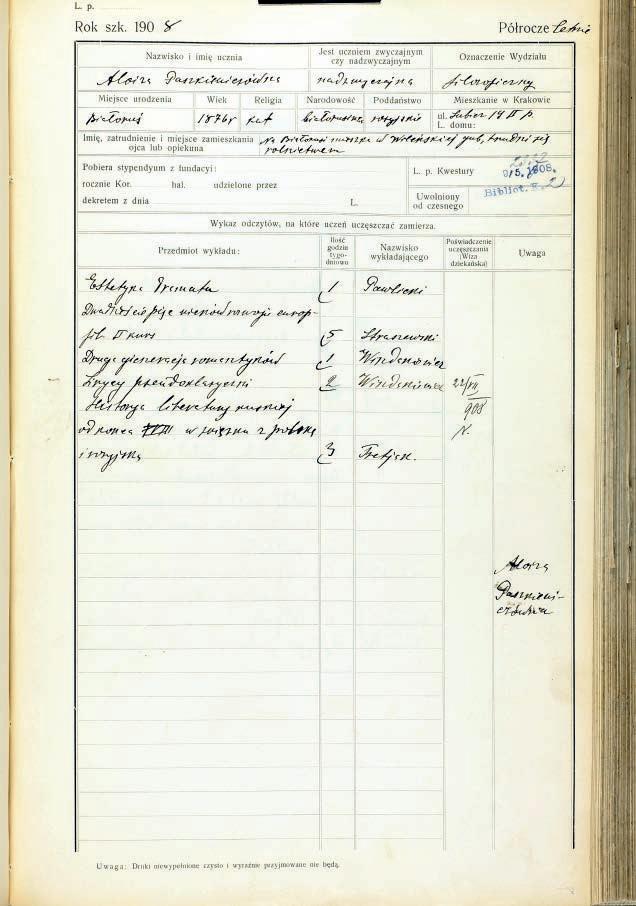 L. p.
Rok szk. 190 8 Półrocze letnie
Nazwisko i imię ucznia
Jest uczniem zwyczajnym czy nadzwyczajnym
Oznaczenie Wydziału
Aloiza Paszkiewiczówna nadzwyczajna filozoficzny
Miejsce urodzenia Wiek Religia Narodowość Poddaństwo Mieszkanie w Krakowie
Białoruś 1876 r kat białoruska rosyjskie ul. 14 II p.
L. domu:
Imię, zatrudnienie i miejsce zamieszkania ojca lub opiekuna
Na Białorusi mieszka w Wileńskiej gub, trudni się
rolnictwem
Pobiera stypendyum z fundacyi:
rocznie Kor. hal. udzielone przez
dekretem z dnia L.
L. p. Kwestury
9/5. 1908.
Uwolniony od czesnego
Bibliot. K. 2
Wykaz odczytów, na które uczeń uczęszczać zamierza.
Przedmiot wykładu:
Ilość godzin tygodniowo
Nazwisko wykładającego
Poświadczenie uczęszczania (Wiza dziekańska)
Uwaga
Estetyka Dramatu 1 Pawlicki
europ-
fil. II kurs 5 Straszewski
Druga generacja romantyków 1 Windakiewicz
Lirycy pseudoklasyczni 2 Windakiewicz 22/VII
Historya literatury ruskiej 908
od końca XVIII w związku z polską N.
i rosyjską 3 Tretjak.
Aloiza
Paszkiewi-
czówna
Uwaga: Druki niewypełnione czysto i wyraźnie przyjmowane nie będą.